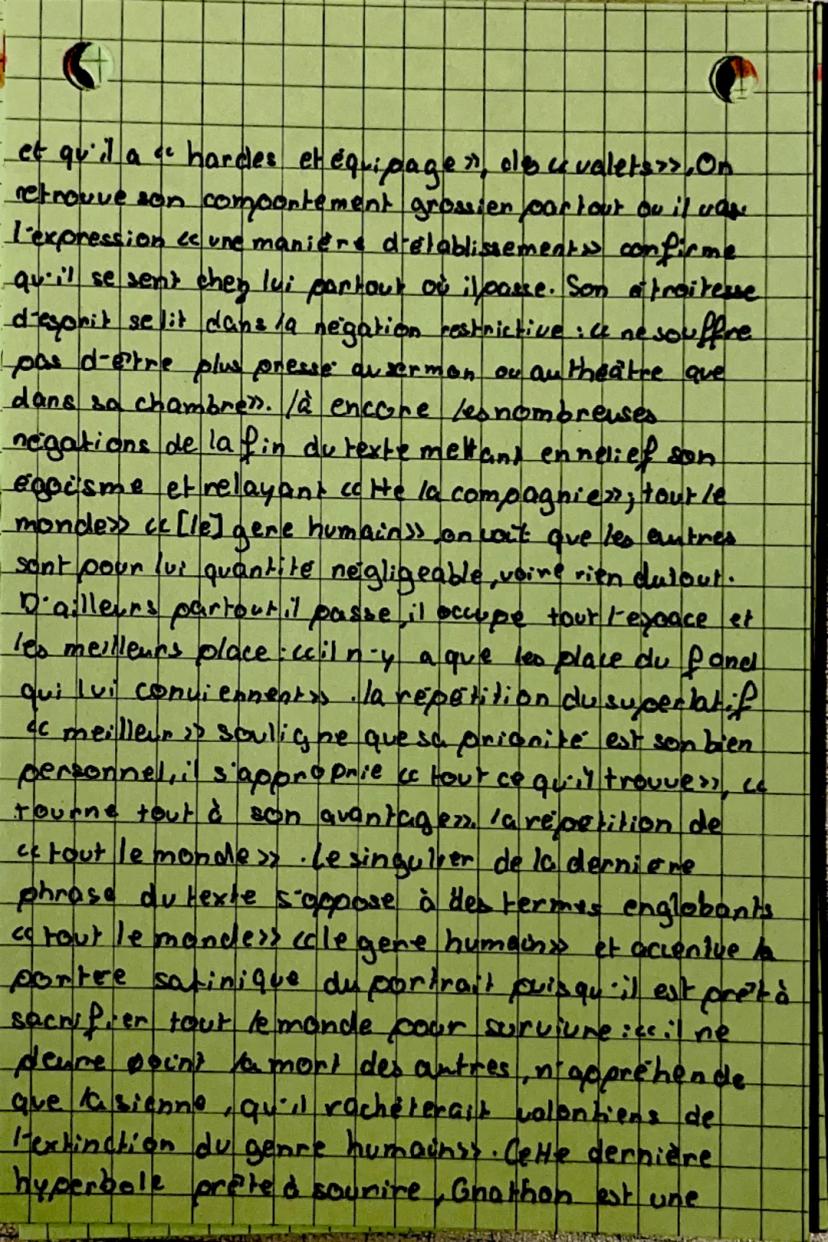 et qu'il a « hardes et équipage », des « valets », On
retrouve son comportement grossier partout ou il va
l'expression « une manière d'établissement » confirme
qu'il se sent chez lui partout où il passe. Son étroitesse
d'esprit se lit dans la négation restrictive : « ne souffre
pas d'être plus pressé au sermon ou au théâtre que
dans sa chambre ». là encore les nombreuses
négations de la fin du texte mettant en relief son
égoïsme et relayant « tte la compagnie » ; tout le
monde » « [le] gene humain », on voit que les autres
sont pour lui quantité négligeable, voire rien du tout.
D'ailleurs partout il passe, il occupe tout l'espace et
les meilleurs place : « il n'y a que les place du fond
qui lui conviennent » . la répétition du superlatif
« meilleur » souligne que sa priorité est son bien
personnel, il s'approprie « tout ce qu'il trouve », «
tourne tout à son avantage ». la répétition de
« tout le monde » . Le singulier de la dernière
phrase du texte s'oppose à des termes englobants
« tout le monde » « le gene humain » et accentue la
portée satirique du portrait puisqu'il est prêt à
sacrifier tout le monde pour survivre : « il ne
pleure point la mort des autres, n'appréhende
que la sienne, qu'il rachèterait volontiers de
l'extinction du genre humain ». Cette dernière
hyperbole prête à sourire, Gnathon est une